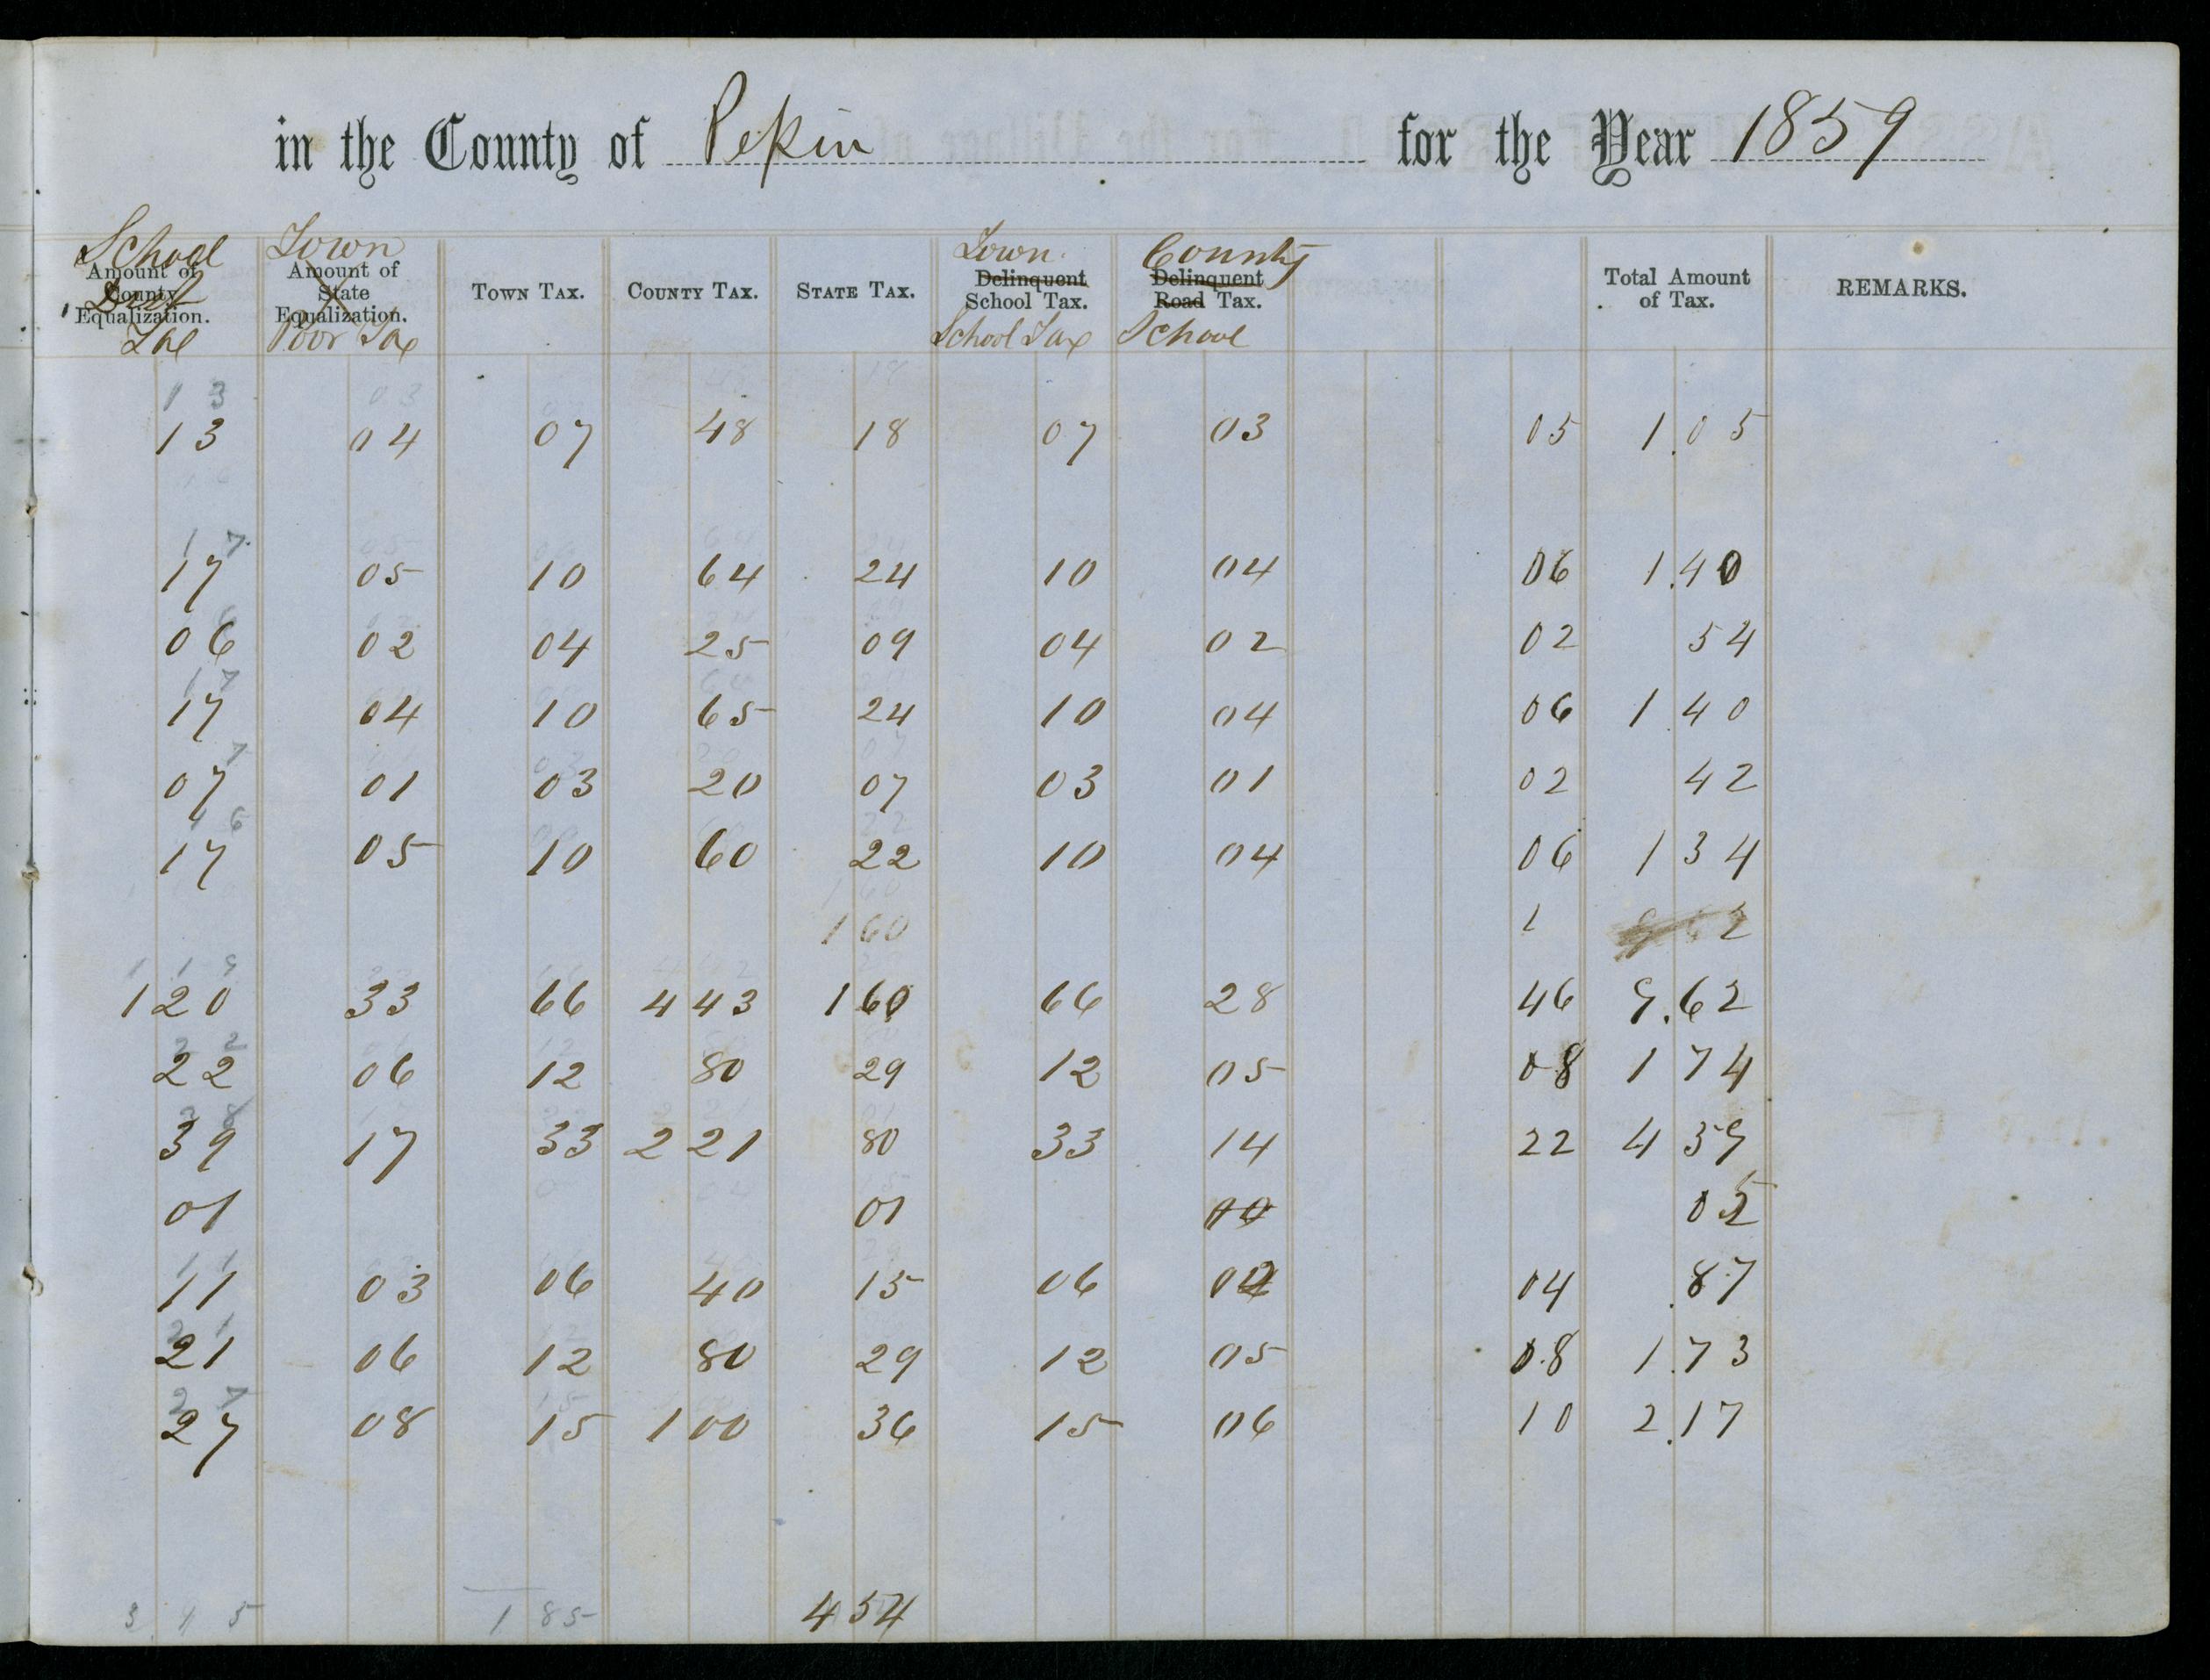 in the County of Pepin for the Year 1859
School Town Town County
Amount of County Equalization. Amount of State Equalization. TOWN TAX. COUNTY TAX. STATE TAX. Delinquent School Tax. Delinquent Road Tax. Total Amount of Tax. REMARKS.
Dist
Tax Poor Tax School Tax School
1 3 03 48 18
13 04 07 48 18 07 03 05 1.05
1 7 05 64 24
17 05 10 64 24 10 04 06 1.40
06 02 04 25 09 04 02 02 54
1 7
17 04 10 65 24 10 04 06 1 40
7 03 20 07
07 01 03 20 07 03 01 02 42
1 6 22
17 05 10 60 22 10 04 06 1 34
160
160 1 9 62
1 1 9
1 20 33 66 4 43 1 60 66 28 46 9.62
2 2 12
22 06 12 80 29 12 05 08 1 74
3 8
39 17 33 2 21 80 33 14 22 4 59
01 01 00 02
1 1
11 03 06 40 15 06 02 04 .87
2 1 12
21 06 12 80 29 12 05 08 1.73
2 7 15
27 08 15 1 00 36 15 06 10 2.17
3 4 5 1 85 4 54